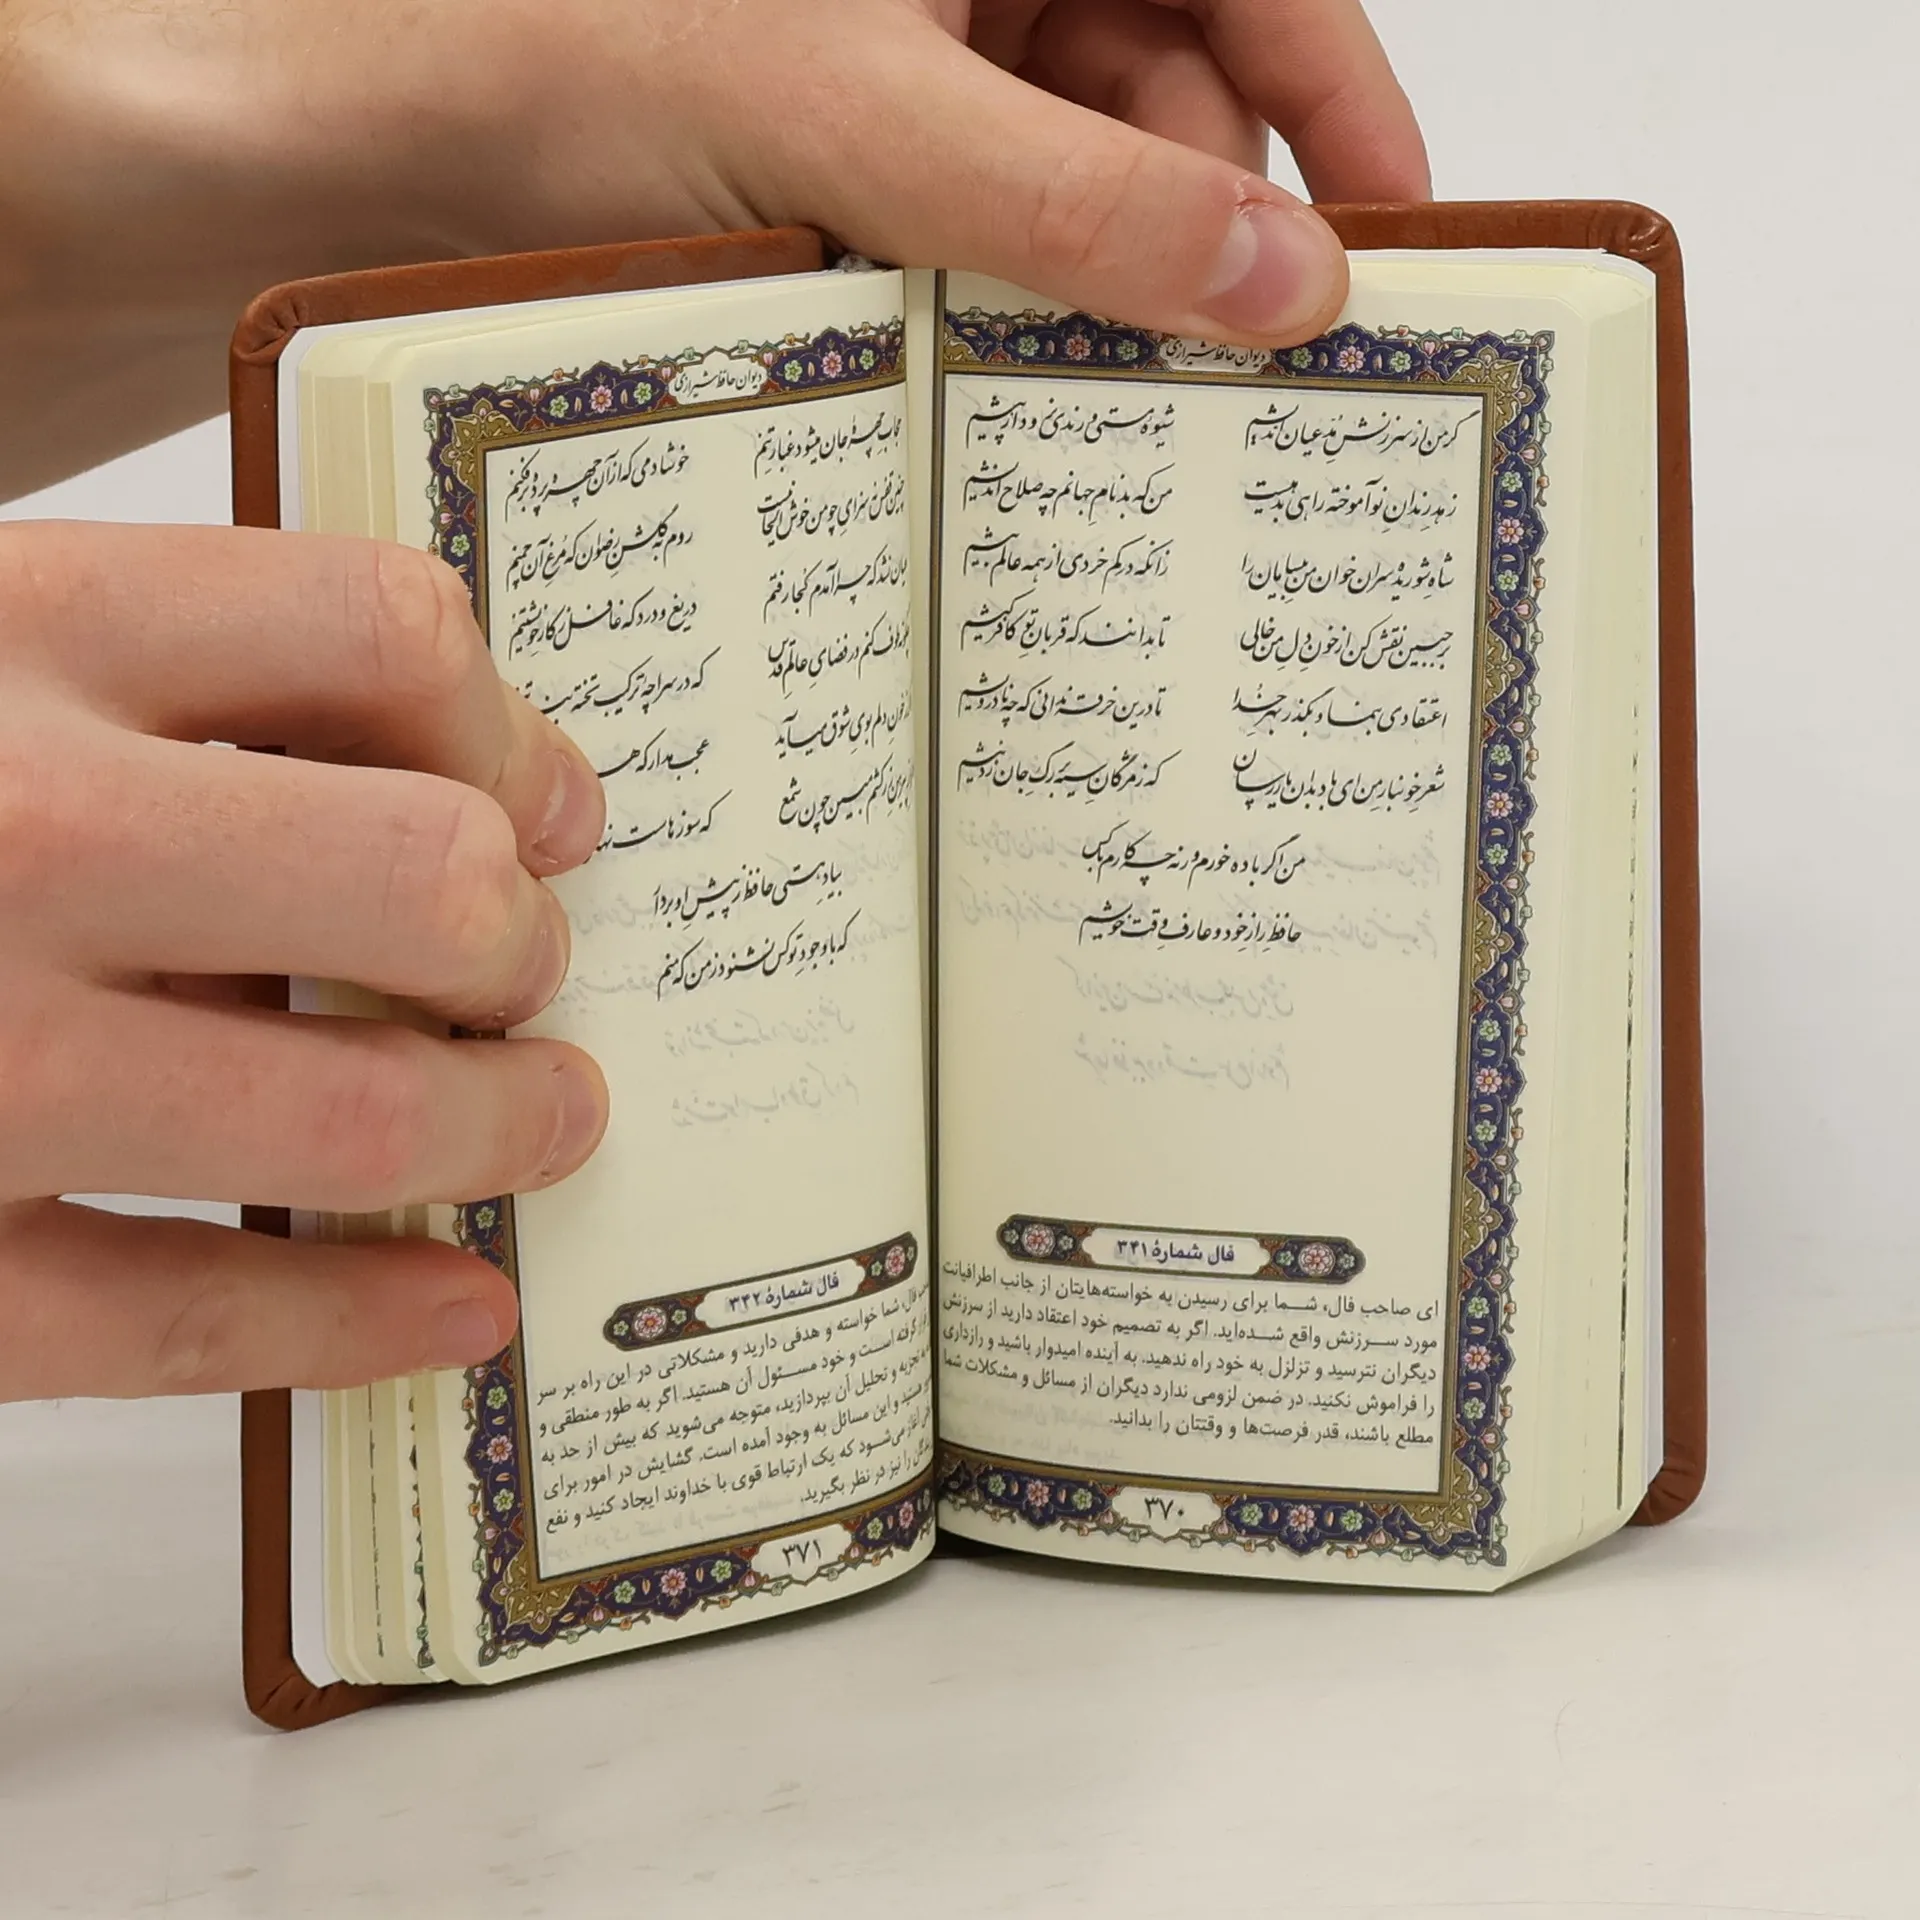 دیوان حافظ شیرازی
گر من از سرزنش مُدّعیان اندیشم
شیوهٔ مستی و رندی نرود از پیشم
زهد رندان نوآموخته راهی بدهیست
من که بدنامِ جهانم چه صلاح اندیشم
شاه شوریده سران خوان منِ بی‌سامان را
زانکه در کم خردی از همه عالم بیشم
بر جبین نقش کن از خونِ دلِ من خالی
تا بدانند که قربانِ تو کافر کیشم
اعتقادی بنما و بگذر بهرِ خدا
تا درین خرقه ندانی که چه نادرویشم
شعرِ خونبار من ای باد بدان یار رسان
که ز مژگانِ سیه بر رگِ جان زد نیشم
من اگر باده خورم ورنه چه کارم با کس
حافظِ رازِ خود و عارفِ وقتِ خویشم
فال شمارهٔ ۳۴۱
ای صاحب فال، شما برای رسیدن به خواسته‌هایتان از جانب اطرافیانت
مورد سرزنش واقع شده‌اید. اگر به تصمیم خود اعتقاد دارید از سرزنش
دیگران نترسید و تزلزل به خود راه ندهید. به آینده امیدوار باشید و رازداری
را فراموش نکنید. در ضمن لزومی ندارد دیگران از مسائل و مشکلات شما
مطلع باشند، قدر فرصت‌ها و وقتتان را بدانید.
۳۷۰
دیوان حافظ شیرازی
حجابِ چهرهٔ جان میشود غبارِ تنم
خوشا دمی که از آن چهره پرده برفکنم
چنین قفس نه سزای چو من خوش الحانیست
روم به گلشنِ رضوان که مُرغِ آن چمنم
عیان نشد که چرا آمدم کجا رفتم
دریغ و درد که غافل ز کارِ خویشتنم
طوف کنم در فضایِ عالمِ قدس
که در سراچه ترکیب تخته بند
خونِ دلم بویِ شوق میآید
عجب مدار که
زرکشم مبین چون شمع
که سوزهاست
بیا و هستی حافظ ز پیشِ او بردار
که با وجودِ تو کس نشنود ز من که منم
فال شمارهٔ ۳۴۲
فال، شما خواسته و هدفی دارید و مشکلاتی در این راه بر سر
گرفته است و خود مسئول آن هستید. اگر به طور منطقی و
به تجزیه و تحلیل آن بپردازید، متوجه می‌شوید که بیش از حد به
هستید و این مسائل به وجود آمده است. گشایش در امور برای
آغاز می‌شود که یک ارتباط قوی با خداوند ایجاد کنید و نفع
را نیز در نظر بگیرید.
۳۷۱